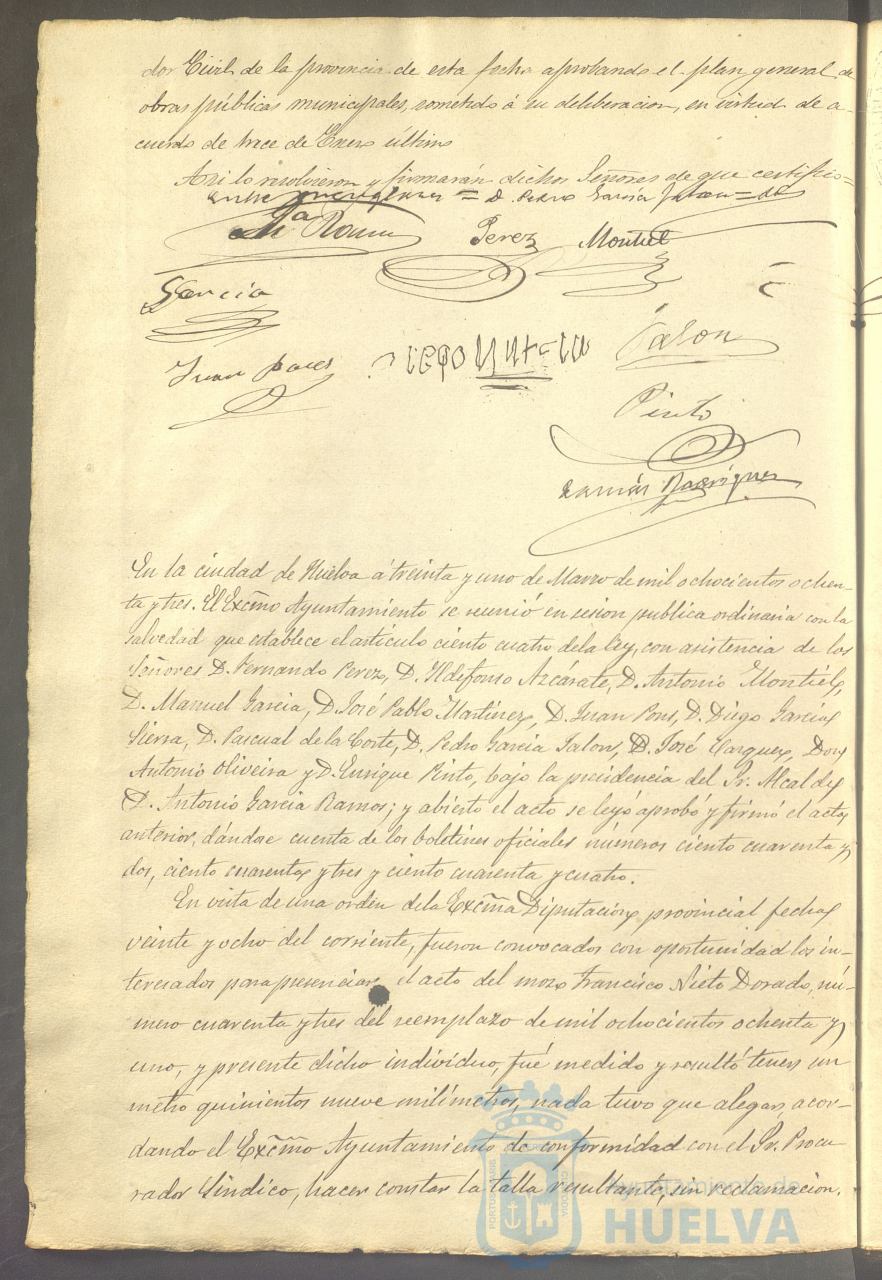 dor Civil de la provincia de esta fecha aprobando el plan general de
obras públicas municipales, sometido á su deliberacion, en virtud de a-
cuerdo de trece de Enero último
Asi lo resolvieron y firmarán dichos Señores de que certifico=
= D. Pedro García Jalon =
Ga Ramos
Perez
Montiel
García
Jalon
Juan Pons
Diego García
Pinto
Ramón Rodríguez
En la ciudad de Huelva á treinta y uno de Marzo de mil ochocientos ochen-
ta y tres. El Excmo Ayuntamiento se reunió en sesion publica ordinaria con la
salvedad que establece el artículo ciento cuatro de la ley, con asistencia de los
Señores D. Fernando Perez, D. Ildefonso Azcárate, D. Antonio Montiel,
D. Manuel Garcia, D. José Pablo Martinez, D. Juan Pons, D. Diego García
Sierra, D. Pascual de la Corte, D. Pedro García Jalon, D. José Vazquez, Don
Antonio Oliveira y D. Enrique Pinto, bajo la presidencia del Sr. Alcalde
D. Antonio García Ramos; y abierto el acto se leyó aprobó y firmó el acta
anterior, dándose cuenta de los boletines oficiales números ciento cuarenta y
dos, ciento cuarenta y tres y ciento cuarenta y cuatro.
En vista de una orden de la Excma Diputacion provincial fecha
veinte y ocho del corriente, fueron convocados con oportunidad los in-
teresados para presenciar el acto del mozo Francisco Nieto Dorado, nú-
mero cuarenta y tres del reemplazo de mil ochocientos ochenta y
uno, y presente dicho individuo, fué medido y resultó tener un
metro quinientos nueve milímetros, nada tuvo que alegar, acor-
dando el Excmo Ayuntamiento de conformidad con el Sr. Procu-
rador Síndico, hacer constar la talla resultante, sin reclamacion.
Ayuntamiento de
HUELVA